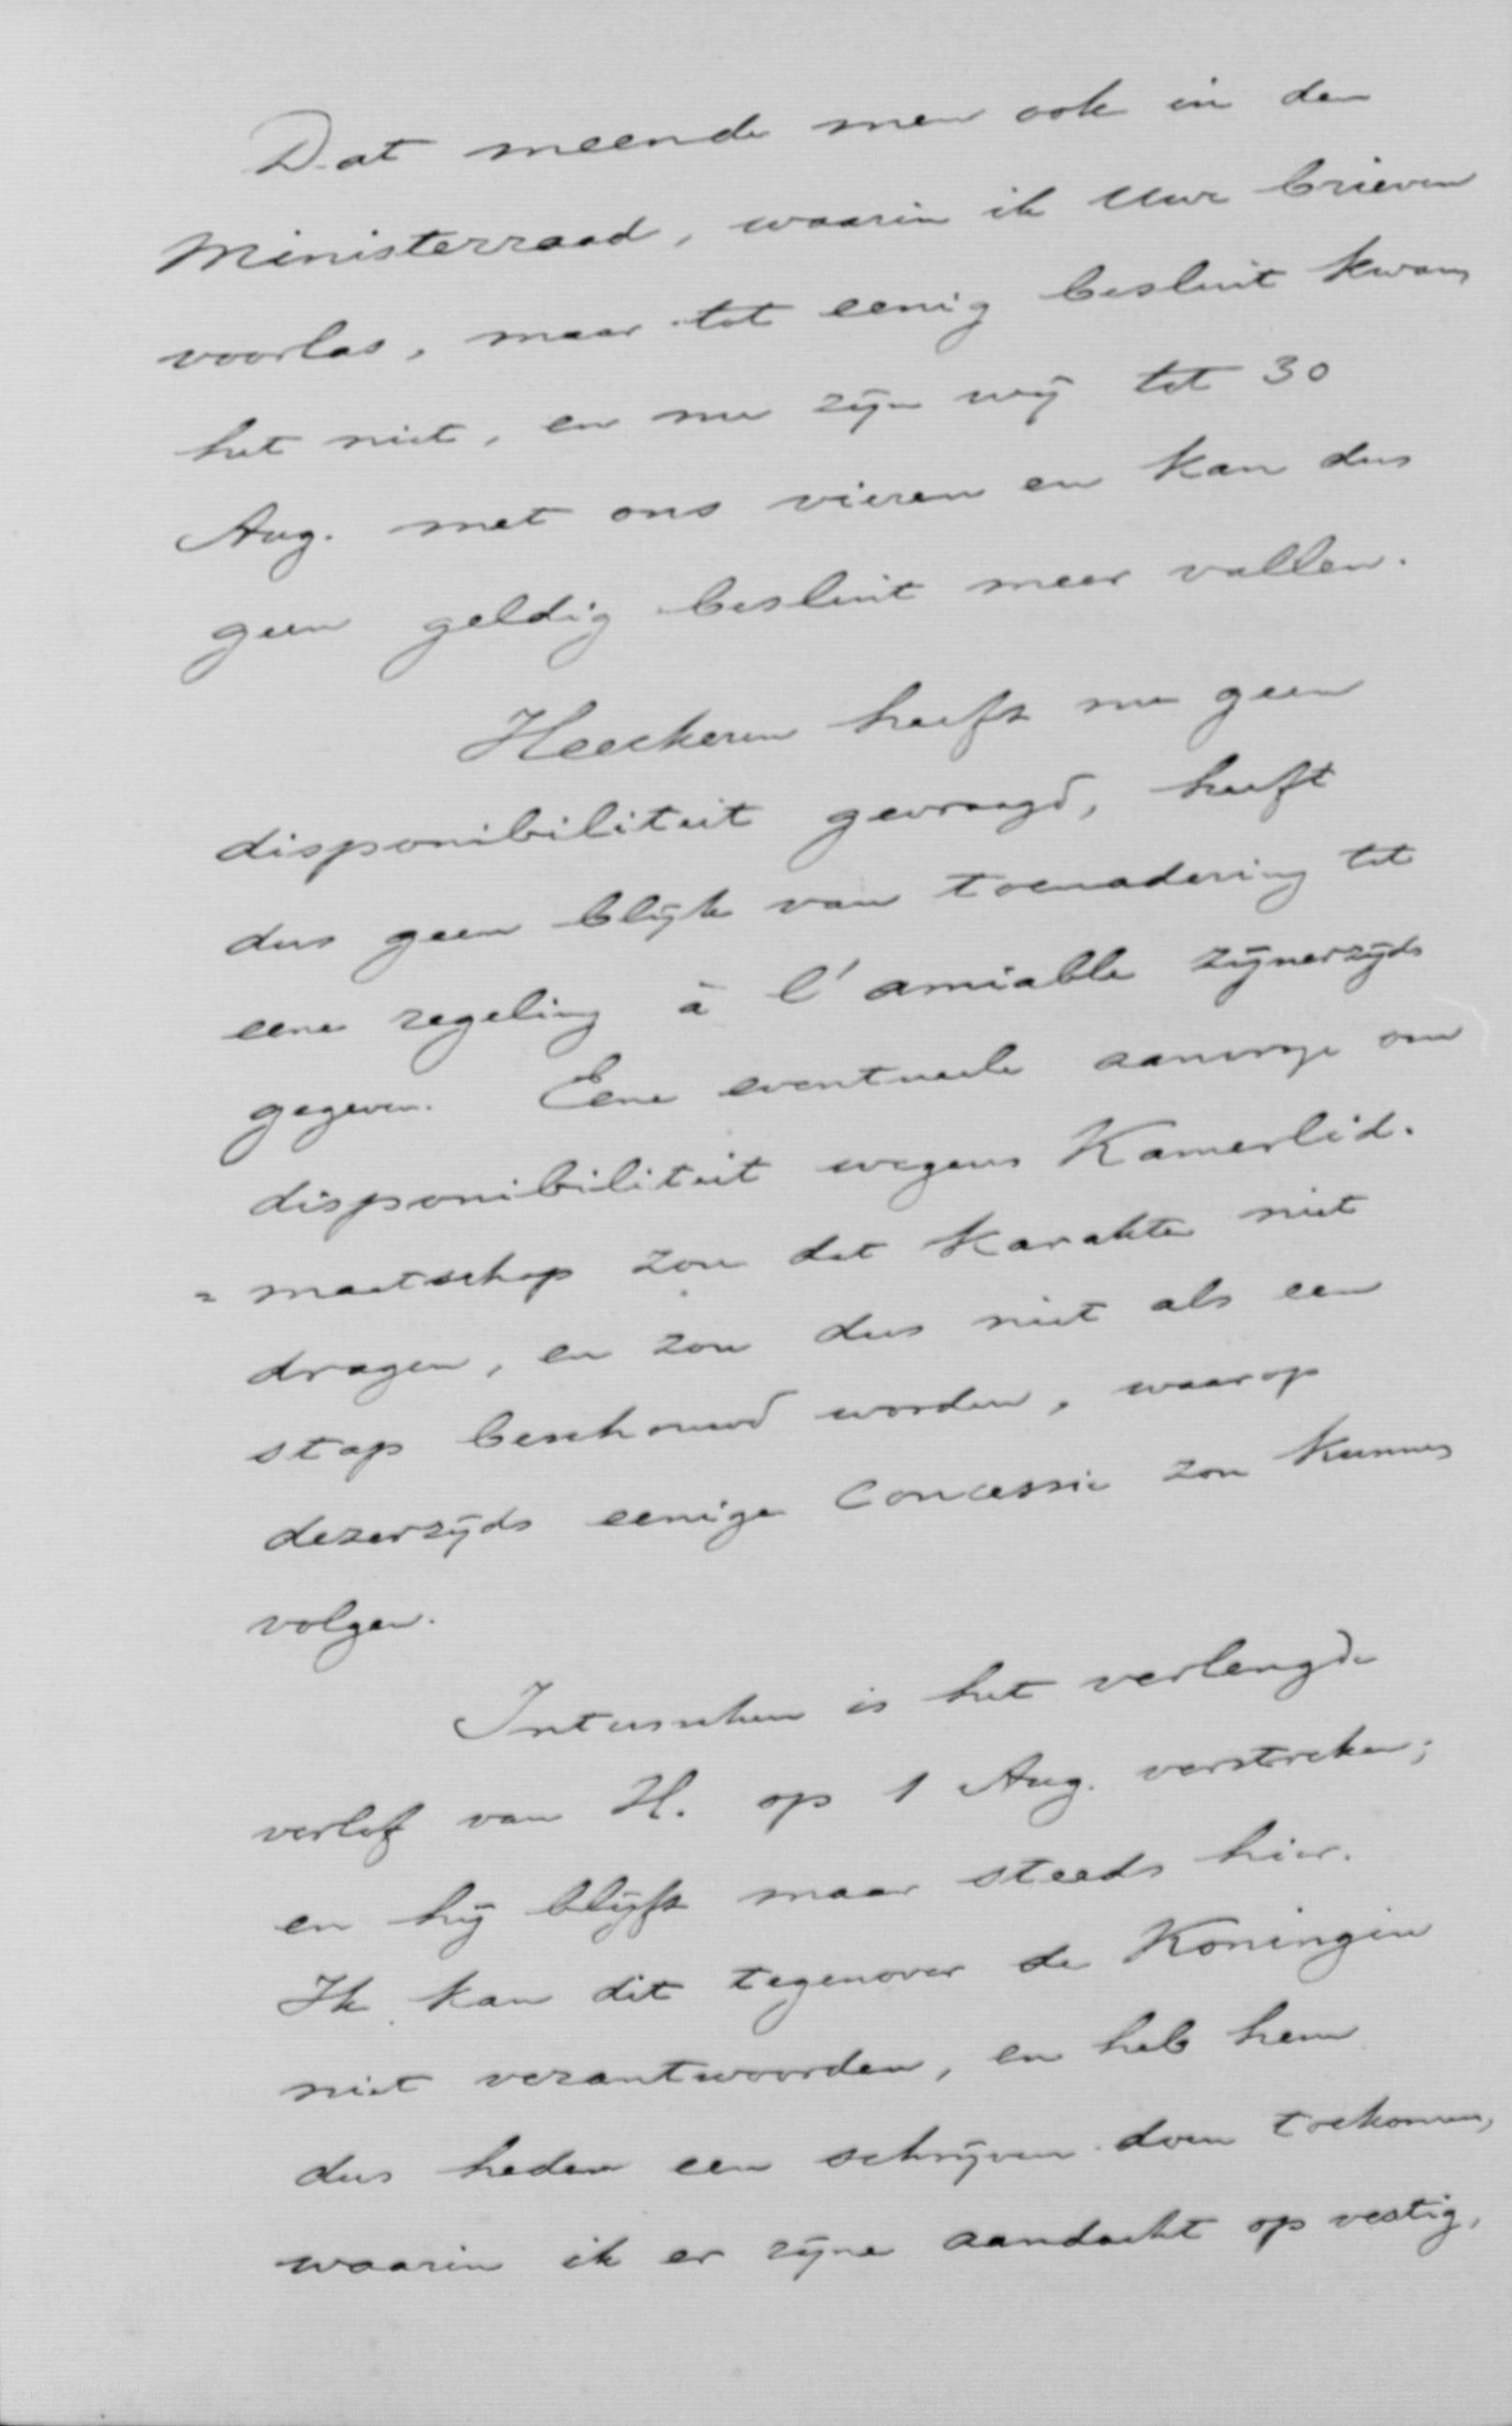 Dat meende men ook in den
Ministerraad, waarin ik Uwe brieven
voorlas, maar tot eenig besluit kwam
het niet, en nu zijn wij tot 30
Aug. met ons vieren en kan dus
geen geldig besluit meer vallen.
Heeckeren heeft nu geen
disponibiliteit gevraagd, heeft
dus geen blijk van toenadering tot
eene regeling à l'amiable zijnerzijds
gegeven. Eene eventueele aanvrage om
disponibiliteit wegens Kamerlid-
=maatschap zou dat karakter niet
dragen, en zou dus niet als een
stap beschouwd worden, waarop
dezerzijds eenige concessie zou kunnen
volgen.
Intusschen is het verlengde
verlof van H. op 1 Aug. verstreken;
en hij blijft maar steeds hier.
Ik kan dit tegenover de Koningin
niet verantwoorden, en heb hem
dus heden een schrijven doen toekomen,
waarin ik er zijne aandacht op vestig,